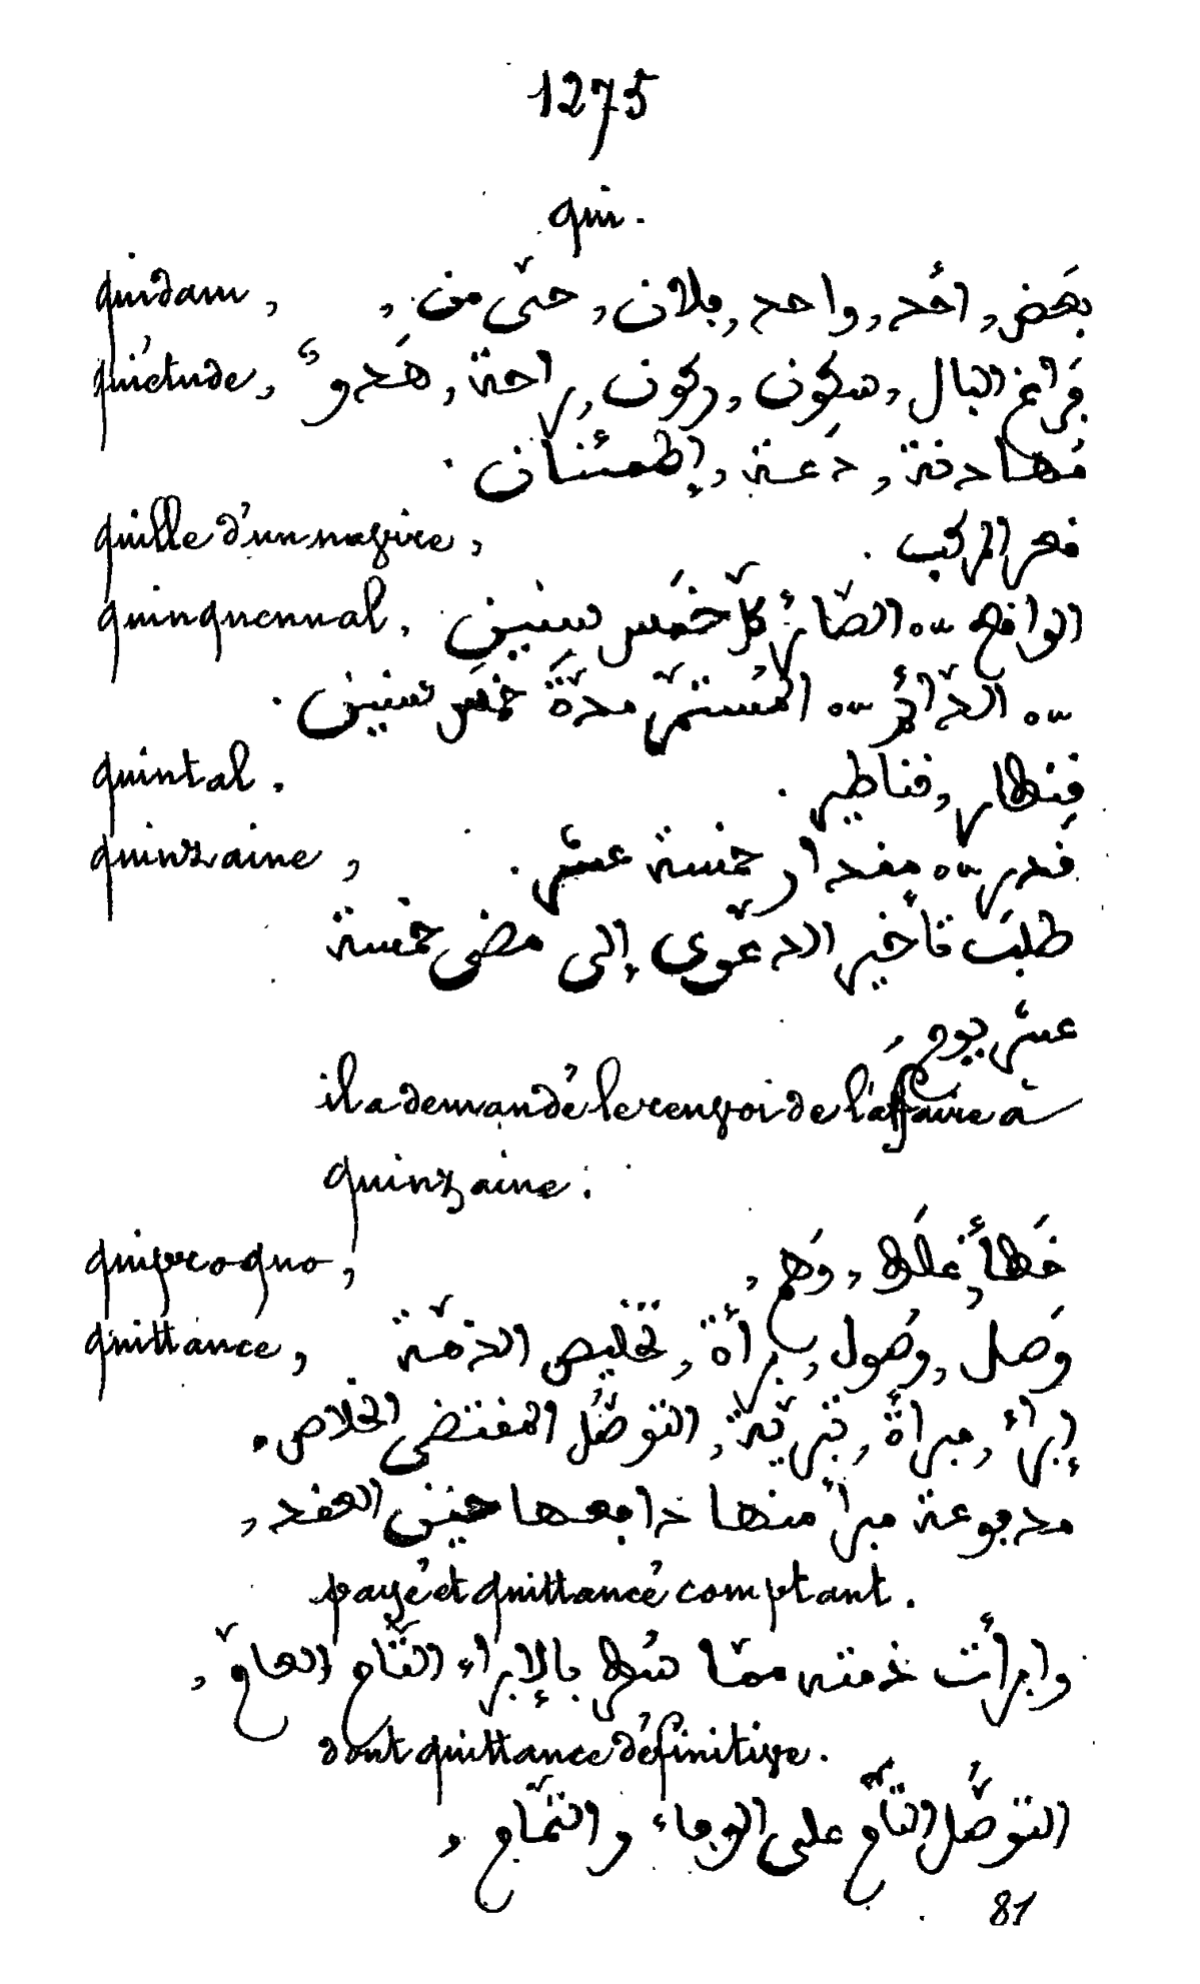 1275
qui.
quidam, بعَض, أحَد, واحد, فلان, حتّى من,
quiétude, فَراغ البال, سكون, ركون, راحة, هَدوءٌ,
مُهادنة, دَعة, إطمئنان.
quille d'un navire, فعر المركب.
quinquennal, الوافع ~ه الصّائرُ كلّ خمَس سنين
~ه الدّائمُ ~ه المُستمرّ مدّةَ خمَس سنين.
quintal. فِنطار, فناطير.
quinzaine, فَدر ~ه مفدار خمسة عشر.
طلبَت تأخير الدعّوى إلى مضى خمسة
عشر يوم,
il a demandé le renvoi de l'affaire à
quinzaine.
quiproquo, خَطأ, غلَط, وَهم,
quittance, وَصل, وصُول, برأة, تخليص الذمّة
إبراء, مبرأة, تبرية, التوصُّل المفتضى الخلاص.
مدفوعة مبرأ منها دافعها حين العفد,
payé et quittancé comptant.
وابرأت ذمته ممّا شُرط بالإبراء التّام العاقّ,
dont quittance définitive.
التوصُّل التامّ على الوفاء والتمّام,
81